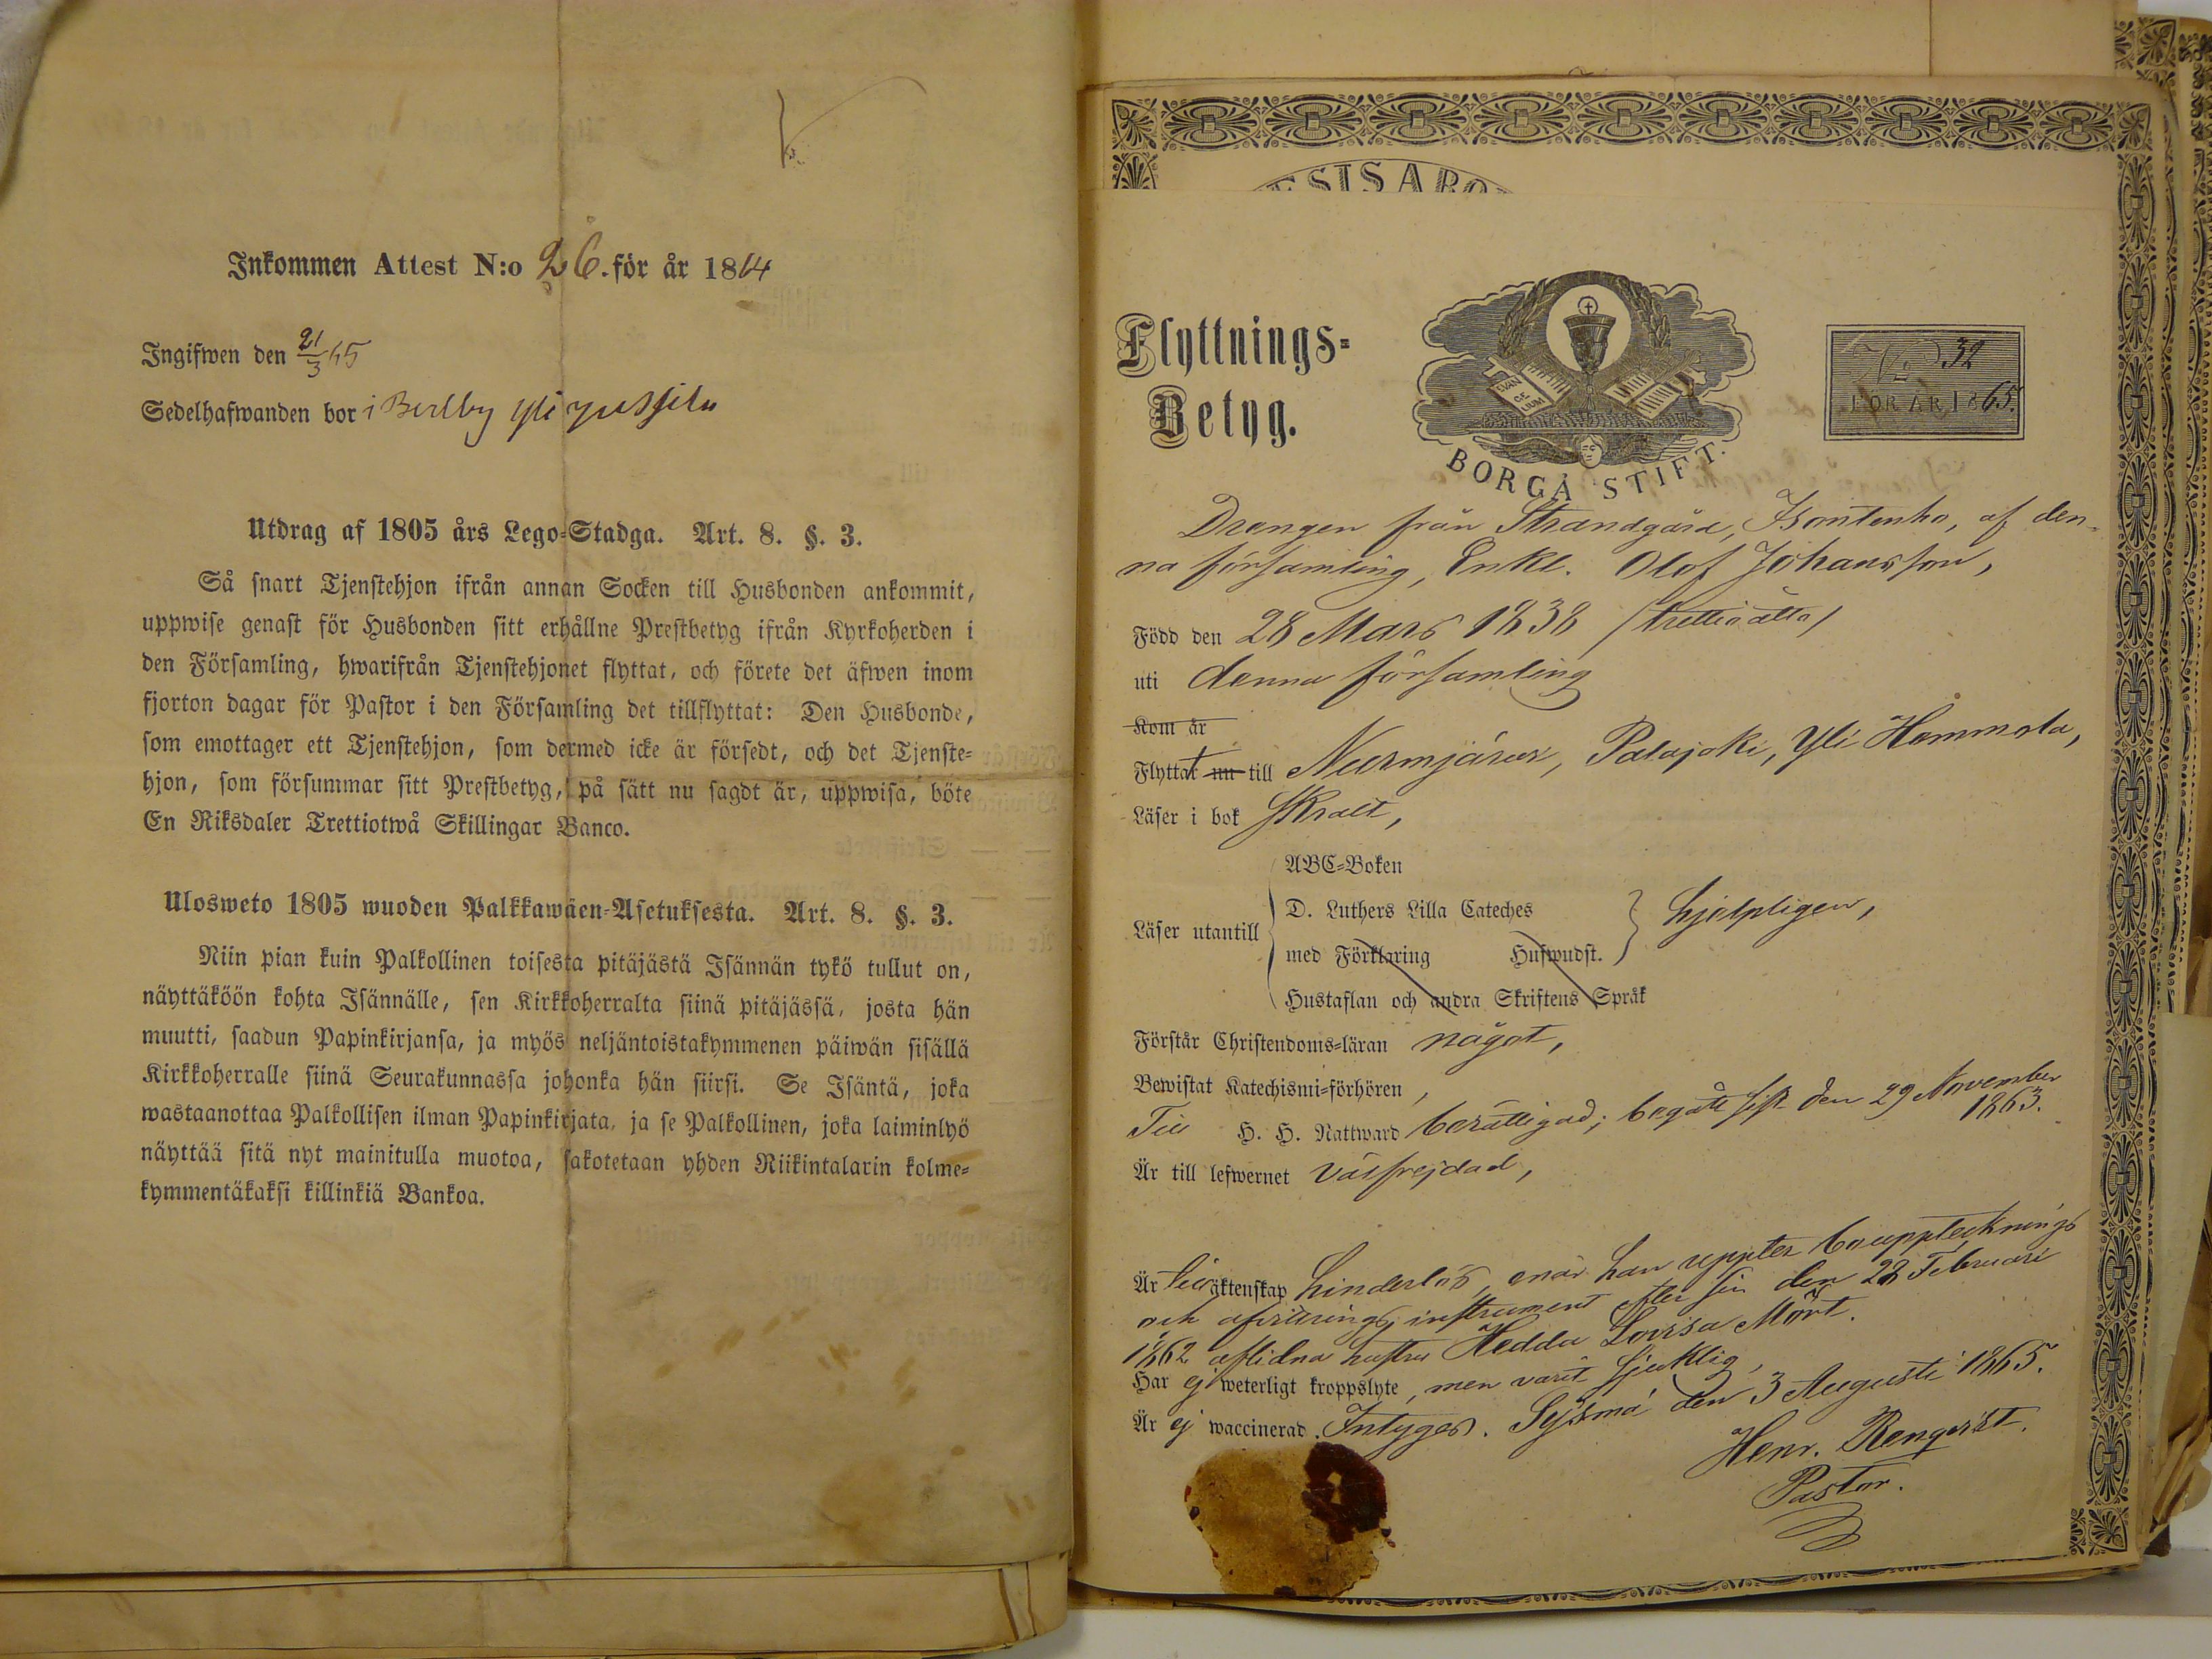 Inkommen Attest N:o 26. för år 1864
Ingifwen den 21/3 65
Sedelhafwanden bor i Berlby Yli jussila
Utdrag af 1805 års Lego-Stadga. Art. 8. §. 3.
Så snart Tjenstehjon ifrån annan Socken till Husbonden ankommit,
uppwise genast för Husbonden sitt erhållne Prestbetyg ifrån Kyrkoherden i
den Församling, hwarifrån Tjenstehjonet flyttat, och förete det äfwen inom
fjorton dagar för Pastor i den Församling det tillflyttat: Den Husbonde,
som emottager ett Tjenstehjon, som dermed icke är försedt, och det Tjenste-
hjon, som försummar sitt Prestbetyg, på sätt nu sagdt är, uppwisa, böte
En Riksdaler Trettiotwå Skillingar Banco.
Ulosweto 1805 wuoden Palkkawäen-Asetuksesta. Art. 8. §. 3.
Niin pian kuin Palkollinen toisesta pitäjästä Isännän tykö tullut on,
näyttäköön kohta Isännälle, sen Kirkkoherralta siinä pitäjässä, josta hän
muutti, saadun Papinkirjansa, ja myös neljäntoistakymmenen päiwän sisällä
Kirkkoherralle siinä Seurakunnassa johonka hän siirsi. Se Isäntä, joka
wastaanottaa Palkollisen ilman Papinkirjata, ja se Palkollinen, joka laiminlyö
näyttää sitä nyt mainitulla muotoa, sakotetaan yhden Riikintalarin kolme-
kymmentäkaksi killinkiä Bankoa.
Flyttnings-
Betyg.
EVAN
GE
LIUM
BORGÅ STIFT.
No 32
FÖR ÅR 1865.
Drengen från Strandgård, Isontenho, af den-
na församling, Enkl. Olof Johansson,
Född den 28 Mars 1838 /trettioåtta/
uti denna församling
Kom år
Flyttat nu till Nurmijärvi, Palajoki, Yli Hommola,
Läser i bok Skralt,
ABC-Boken
D. Luthers Lilla Cateches
Läser utantill
med Förklaring Hufwudst. hjelpligen,
Hustaflan och andra Skriftens Språk
Förstår Christendoms-läran något,
Bewistat Katechismi-förhören,
Till H. H. Nattward berättigad; begått sist den 29 November
1863.
Är till lefwernet välfrejdad,
Är till äktenskap hinderlös, enär han uppter bouppteknings
och afvittrings instrument efter sin den 28 Februari
1862 aflidna hustru Hedda Lovisa Mört.
Har ej weterligt kroppslyte, men varit sjuklig,
Är ej waccinerad. Intygar. Sysmä den 3 Augusti 1865.
Henr. Renqvist.
Pastor.